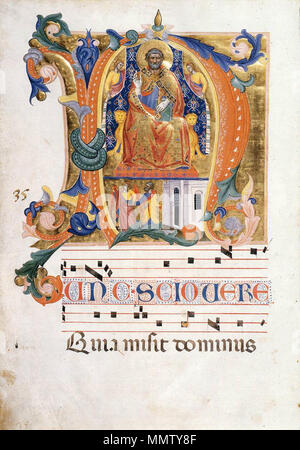 35
NUNC SCIO VERE
Quia misit dominus
alamy
Image ID: MMTY8F
www.alamy.com